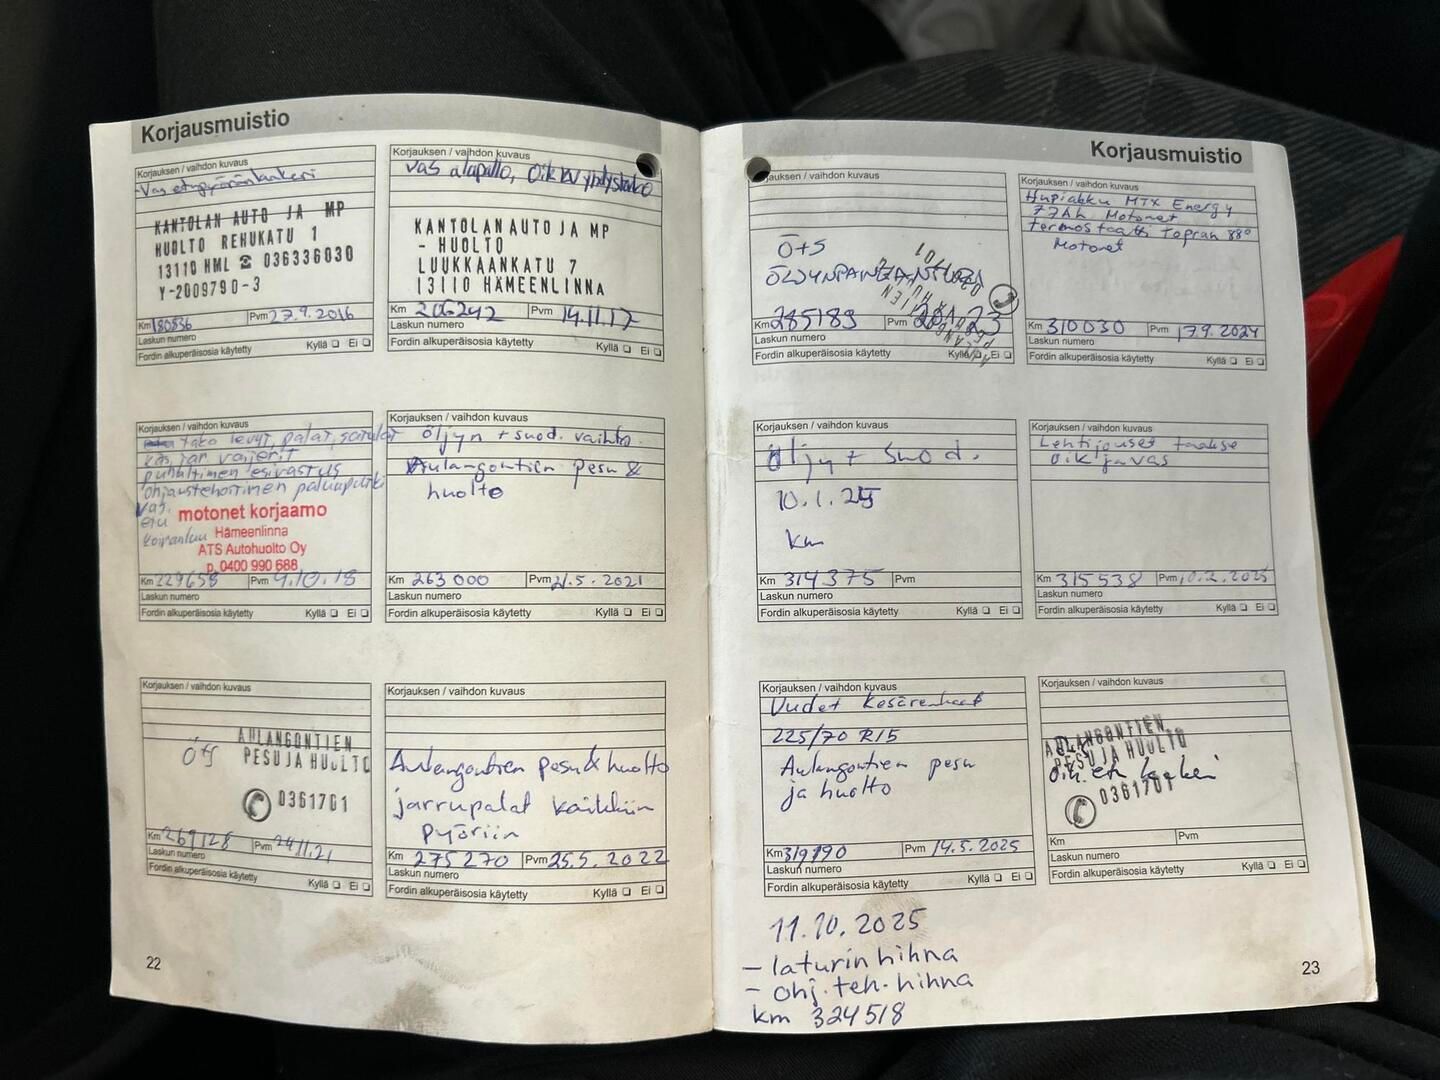 Korjausmuistio
Korjauksen / vaihdon kuvaus
Vas etupyöränlaakeri
KANTOLAN AUTO JA MP
HUOLTO REHUKATU 1
13110 HML ☎ 036336030
Y-2009790-3
Km 180836 Pvm 27.9.2016
Laskun numero
Fordin alkuperäisosia käytetty Kyllä ❏ Ei ❏
Korjauksen / vaihdon kuvaus
vas alapallo, oik kv yhdystanko
KANTOLAN AUTO JA MP
- HUOLTO
LUUKKAANKATU 7
13110 HÄMEENLINNA
Km 206242 Pvm 14.11.17
Laskun numero
Fordin alkuperäisosia käytetty Kyllä ❏ Ei ❏
Korjauksen / vaihdon kuvaus
tako levyt, palat, satulat
käs. jar vaijerit
puhaltimen esivastus
ohjaustehostimen paluuputki
Vas.
etu
koiranluu
motonet korjaamo
Hämeenlinna
ATS Autohuolto Oy
p. 0400 990 688
Km 229658 Pvm 9.10.18
Laskun numero
Fordin alkuperäisosia käytetty Kyllä ❏ Ei ❏
Korjauksen / vaihdon kuvaus
öljyn + suod. vaihto
Aulangontien pesu &
huolto
Km 263000 Pvm 21.5.2021
Laskun numero
Fordin alkuperäisosia käytetty Kyllä ❏ Ei ❏
Korjauksen / vaihdon kuvaus
AULANGONTIEN
PESU JA HUOLTO
0361701
Km 269128 Pvm 24.11.21
Laskun numero
Fordin alkuperäisosia käytetty Kyllä ❏ Ei ❏
Korjauksen / vaihdon kuvaus
Aulangontien pesu & huolto
jarrupalat kaikkiin
pyöriin
Km 275270 Pvm 25.5.2022
Laskun numero
Fordin alkuperäisosia käytetty Kyllä ❏ Ei ❏
22
Korjausmuistio
Korjauksen / vaihdon kuvaus
Ö+S
Km 285189 Pvm
Laskun numero
Fordin alkuperäisosia käytetty Kyllä ❏ Ei ❏
Korjauksen / vaihdon kuvaus
Hupiakku MTX Energy
77Ah Motonet
termostaatti Topran 88°
Motonet
Km 310030 Pvm 17.9.2024
Laskun numero
Fordin alkuperäisosia käytetty Kyllä ❏ Ei ❏
Korjauksen / vaihdon kuvaus
öljy + suod.
10.1.25
km
Km 314375 Pvm
Laskun numero
Fordin alkuperäisosia käytetty Kyllä ❏ Ei ❏
Korjauksen / vaihdon kuvaus
Lehtijouset taakse
oik ja vas
Km 315538 Pvm 10.2.2025
Laskun numero
Fordin alkuperäisosia käytetty Kyllä ❏ Ei ❏
Korjauksen / vaihdon kuvaus
Uudet kesärenkaat
225/70 R15
Aulangontien pesu
ja huolto
Km 319190 Pvm 14.5.2025
Laskun numero
Fordin alkuperäisosia käytetty Kyllä ❏ Ei ❏
Korjauksen / vaihdon kuvaus
AULANGONTIEN
PESU JA HUOLTO
oik. etu laakeri
0361701
Km Pvm
Laskun numero
Fordin alkuperäisosia käytetty Kyllä ❏ Ei ❏
11.10.2025
- laturin hihna
- ohj. teh. hihna
km 324518
23